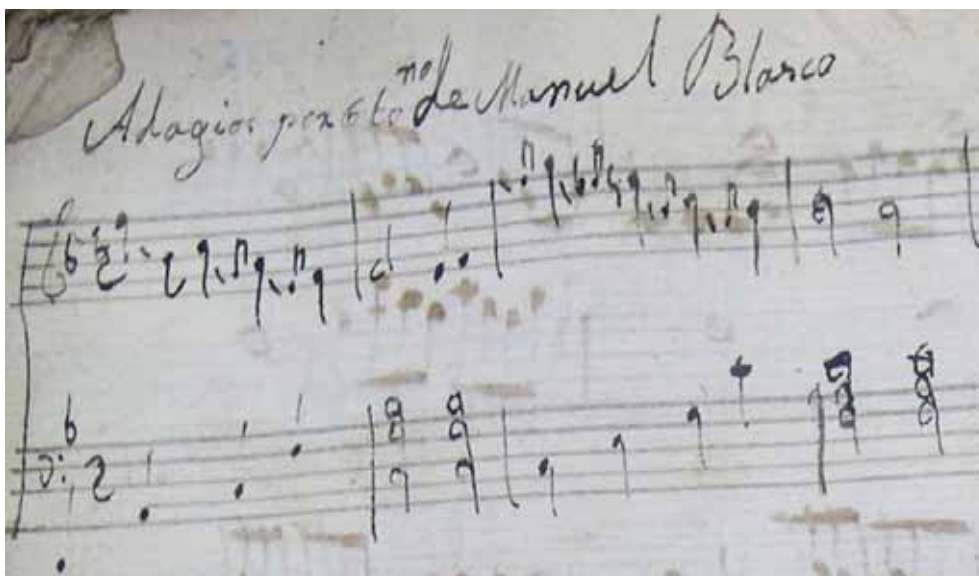 Adagios por 6to no de Manuel Blasco